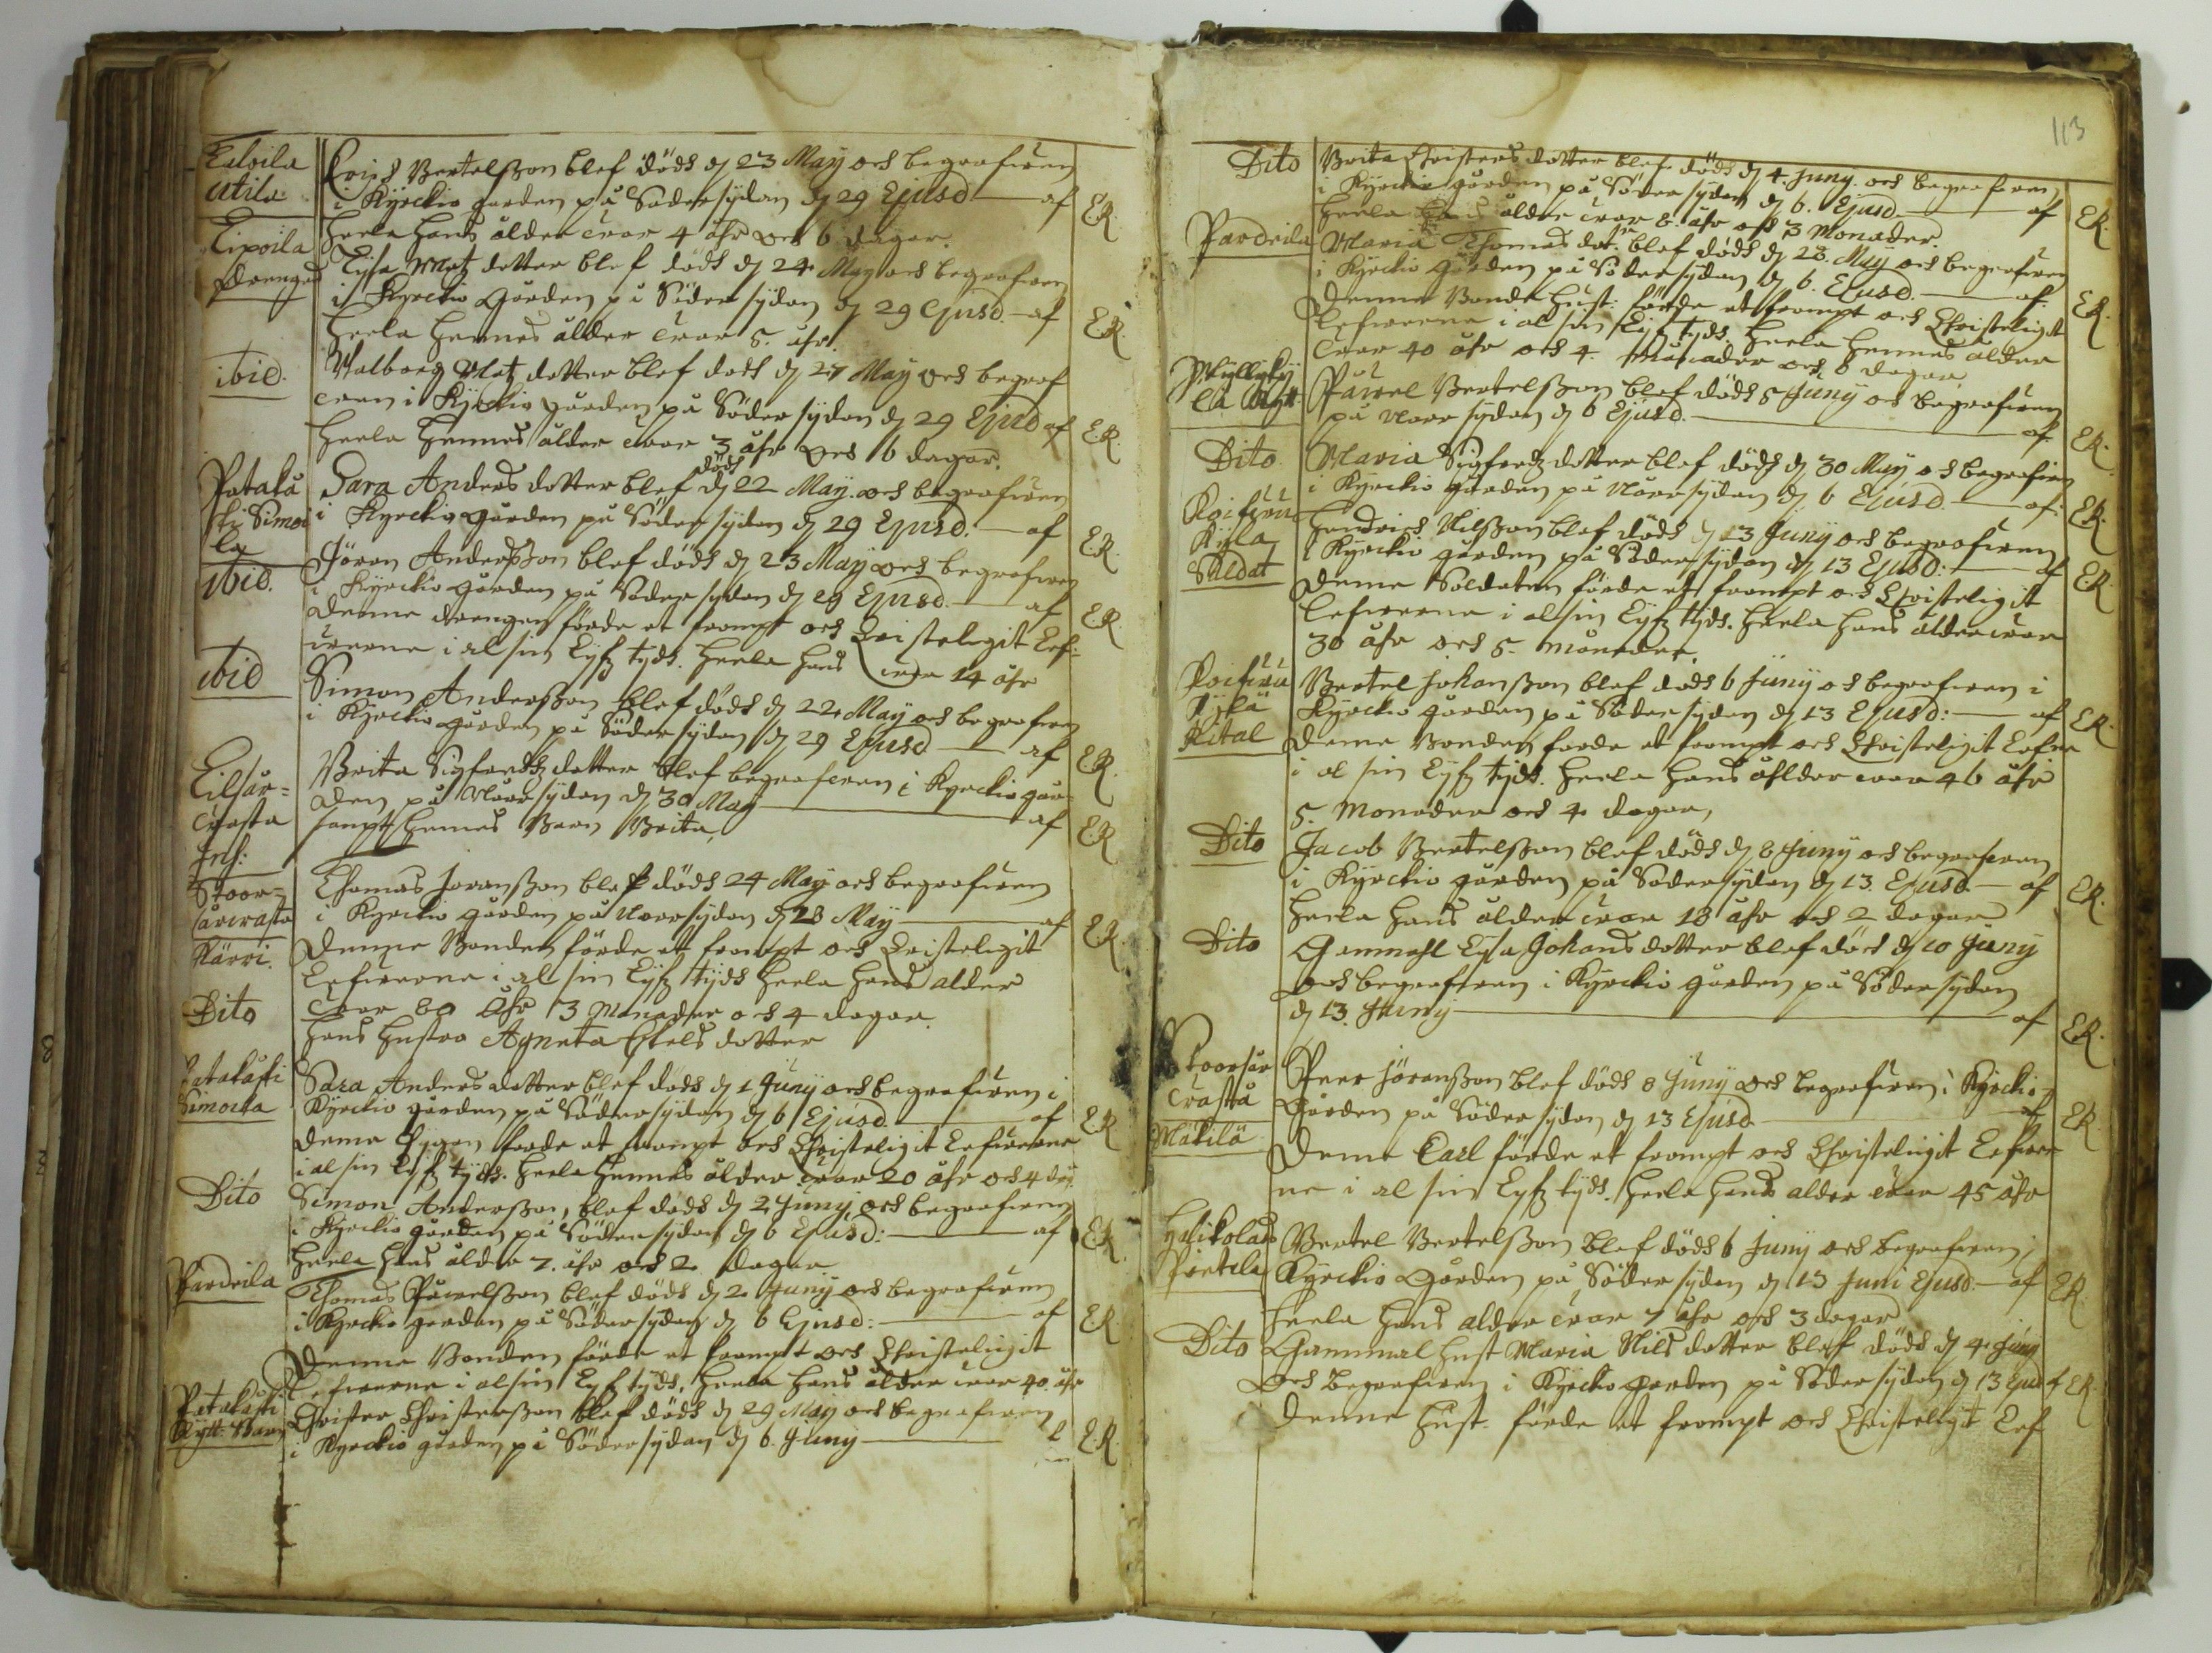 Erich Bertelsson blef dödh dj 23 Maij och begrafwen
Utila i Kyrckio gården på Södersydan dj 29 Ejusd — af E.R.
heela hans ålder war 4 åhr och 6 dagar.
Lijsa Matz dotter blef dödh dj 24 Maij och begrafwen
i Kyrckio Gården på Södersydan dj 29 Ejusd. — af E.R.
heela hennes ålder war 5. åhr.
ibid. Walborg Matz dotter blef dödh dj 27 Maij och begraf
wen i Kyrckio gården på Södersydan dj 29 Ejusd af E.R.
heela hennes ålder war 3 åhr och 6 dagar.
Sara Anders dotter blef dödh dj 22 Maij och begrafwen
i Kyrckio gården på Södersydan dj 29 Ejusd. — af E.R.
ibid. Jöran Andersson blef dödh dj 23 Maij och begrafwen
i Kyrckio gården på Södersydan dj 29 Ejusd — af E.R.
denne drengen förde et fromt och Christeligit Lef-
werne i al sin Lijfz tijdh. heela hans war 14 åhr
ibid Simon Andersson blef dödh dj 22 Maij och begrafwen
i Kyrckio gården på Södersydan dj 29 Ejusd — af E.R.
Brita Sigfredz dotter blef begrafwen i Kyrckio går-
den på Norrsydan dj 30 Maij — af E.R.
sampt hennes Barn Brita,
Thomas Joransson blef dödh 24 Maij och begrafwen
i Kyrckio gården på Norrsydan dj 28 Maij — af E.R.
Denne Bonden förde et fromt och Christeligit
Lefwerne i al sin Lijfz tijdh heela hans ålder
war 80 åhr 3 Monader och 4 dagar.
Dito hans hustro Agneta Eskels dotter
Simoila Sara Anders dotter blef dödh dj 1 Junij och begrafwen i
Kyrckio gården på Södersydan dj 6 Ejusd. — af E.R.
denne Pigan förde et fromt och Christeligit Lefwerne
i al sin Lijfz tijdh. heela hennes ålder war 20 åhr och 4 da.
Dito Simon Andersson, blef dödh dj 2 Junij, och begrafwen
i Kyrckio gården på Södersydan dj 6 Ejusd: — af E.R.
heela hans ålder 7. åhr och 2 dagar
Pardeila Thomas Påwelsson blef dödh dj 2 Junij och begrafwen
i Kyrckio gården på Södersydan dj 6 Ejusd: — af E.R.
Denne Bonden förde et fromt och Christeligit
Lefwerne i al sin Lijfz tijdh, heela hans ålder war 40 åhr
Christer Christersson blef dödh dj 29 Maij och begrafwen
i Kyrckio gården på Södersydan dj 6. Junij — E.R.
113
Dito Brita Christers dotter blef dödh dj 4. Junij. och begrafwen
i Kyrckio gården på Södersydan dj 6. Ejusd. — af E.R.
heela ålder war 8. åhr och 3 Monader.
Pardeila Maria Thomas dotter blef dödh dj 28. Maij och begrafwen
i Kyrckio Gården på Södersydan dj 6. Ejusd. — af. E.R.
denne Bonde hust: förde et fromt och Christeligit
Lefwerne i al sin Lijfz tijdh. heela hennes ålder
war 40 åhr och 4. månader och 8 dagar.
Påwel Bertelsson blef dödh 5 Junij och begrafwen
på Norrsydan dj 6 Ejusd. — af. E.R.
Dito Maria Sigfredz dotter blef dödh dj 30 Maij och begrafwen
i Kyrckio gården på Norrsydan dj 6 Ejusd. — af. E.R.
Kyla Hendrich Nilsson blef dödh dj 13 Junij och begrafwen
Soldat i Kyrckio gården på Södersydan dj 13 Ejusd: — af E.R.
Denne Soldaten förde et fromt och Christeligit
Lefwerne i al sin Lijfz tijdh. heela hans ålder war
30 åhr och 5. månader.
Bertel Johansson blef dödh 6 Junij och begrafwen i
Kyrckio gården på Södersydan dj 13 Ejusd: — af E.R.
denne Bonden förde et fromt och Christeligit Lefwerne
i al sin Lijfz tijdh. heela hans åhlder war 46 åhr
5. Monader och 4 dagar,
Dito Jacob Bertelsson blef dödh dj 8 Junij och begrafwen
i Kyrckio gården på Södersydan dj 13. Ejusd — af E.R.
heela hans ålder war 18 åhr och 2 dagar
Dito Gammahl Lijsa Johans dotter blef dödh dj 10 Junij
och begrafwen i Kyrckio gården på Södersydan
dj 13. Junij — af E.R.
Peer Jöransson blef dödh 8 Junij och begrafwen i Kyrckio
Gården på Södersydan dj 13 Ejusd — af E.R.
Mäkilä Denne Carl förde et fromt och Christeligit Lefwer
ne i al sin Lijfz tijdh. heela hans ålder war 45 åhr
Bertel Bertelsson blef dödh 6 Junij och begrafwen i
Kyrckio Gården på Södersydan dj 13 Juni Ejusd — af E.R.
heela hans ålder war 7 åhr och 3 dagar
Dito Gammal Hust Maria Nils dotter blef dödh dj 4 Junij
och Begrafwen i Kyrckio gården på Södersydan dj 13 Ejusd af E.R.
Denne Hust. förde et fromt och Christeligit Lef